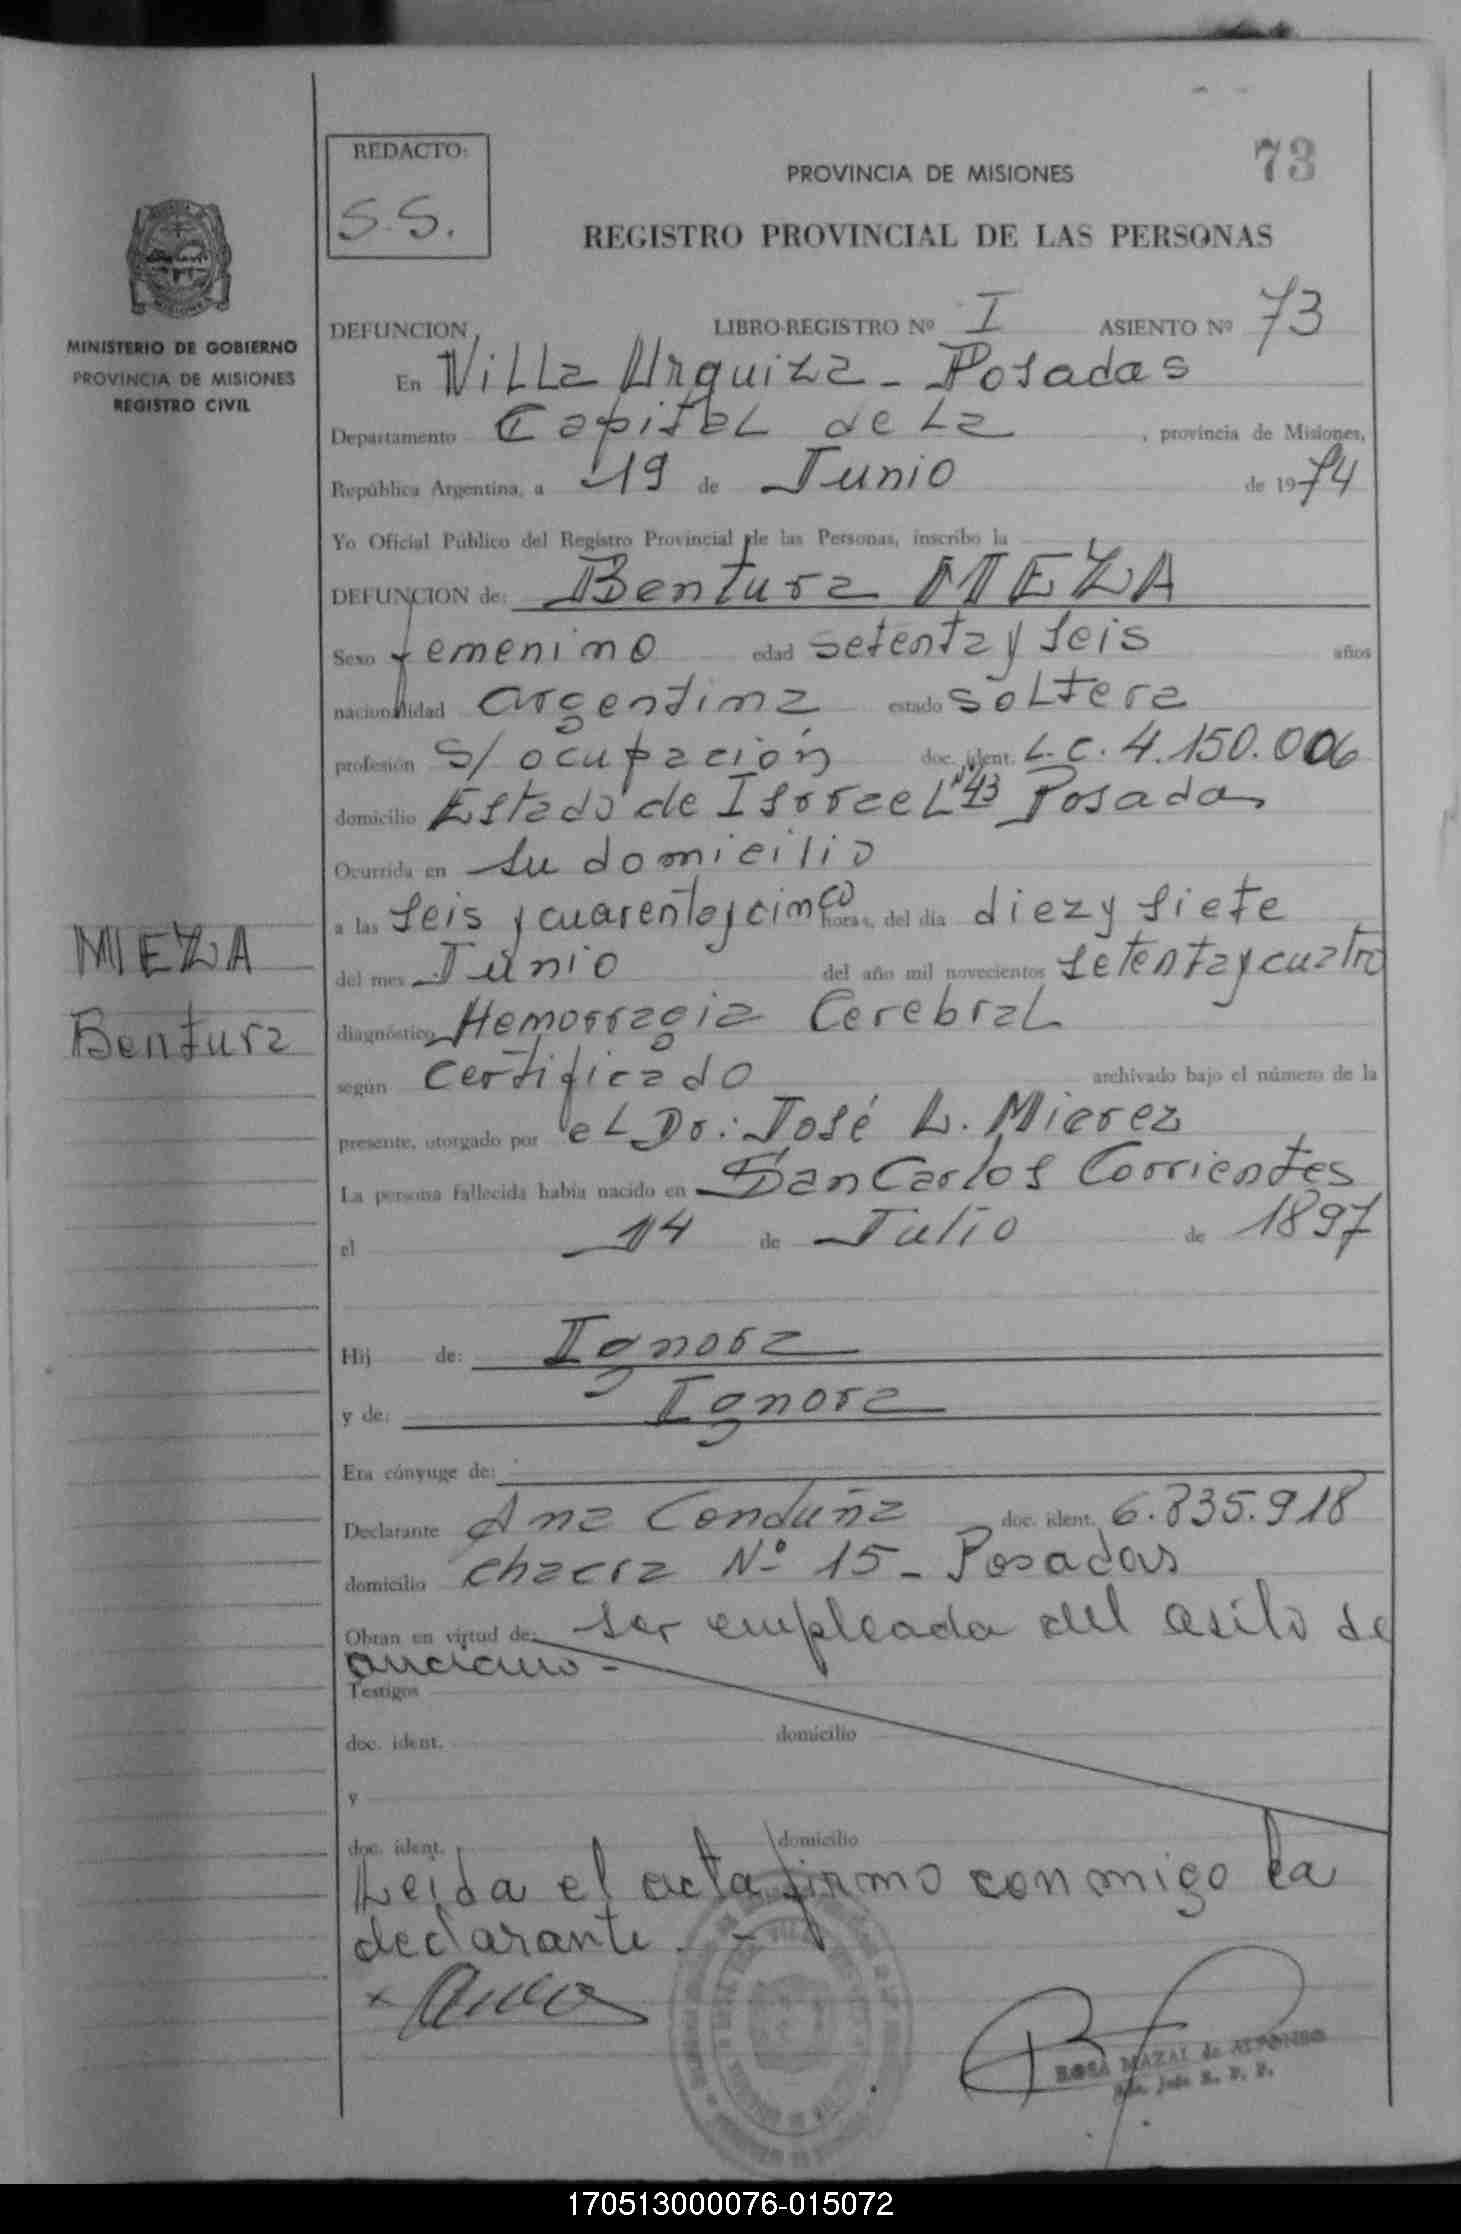 REDACTO:
S.S.
PROVINCIA DE MISIONES
73
REGISTRO PROVINCIAL DE LAS PERSONAS
MINISTERIO DE GOBIERNO
PROVINCIA DE MISIONES
REGISTRO CIVIL
DEFUNCION LIBRO-REGISTRO Nº I ASIENTO Nº 73
En Villa Urquiza - Posadas
Departamento Capital de La, provincia de Misiones,
República Argentina, a 19 de Junio de 1974
Yo Oficial Público del Registro Provincial de las Personas, inscribo la
DEFUNCION de: Bentura MEZA
Sexo femenino edad setenta y seis años
nacionalidad argentina estado soltera
profesión S/ ocupación doc. ident. L.C. 4.150.006
domicilio Estado de Israel Nº 43 Posadas
Ocurrida en su domicilio
a las seis y cuarenta y cinco horas, del día diez y siete
del mes Junio del año mil novecientos setenta y cuatro
MEZA
Bentura
diagnóstico Hemorragia Cerebral
según certificado archivado bajo el número de la
presente, otorgado por el Dr: José L. Mierez
La persona fallecida había nacido en San Carlos Corrientes
el 14 de Julio de 1897
Hij de: Ignora
y de: Ignora
Era cónyuge de:
Declarante Ana Conduña doc. ident. 6.835.918
domicilio chacra Nº 15 - Posadas
Obran en virtud de: ser empleada del asilo de
anciano -
Testigos
doc. ident. domicilio
y
doc. ident. domicilio
Leida el acta firmo conmigo la
declarante. -
ROSA MAZAL de ALFONSO
170513000076-015072